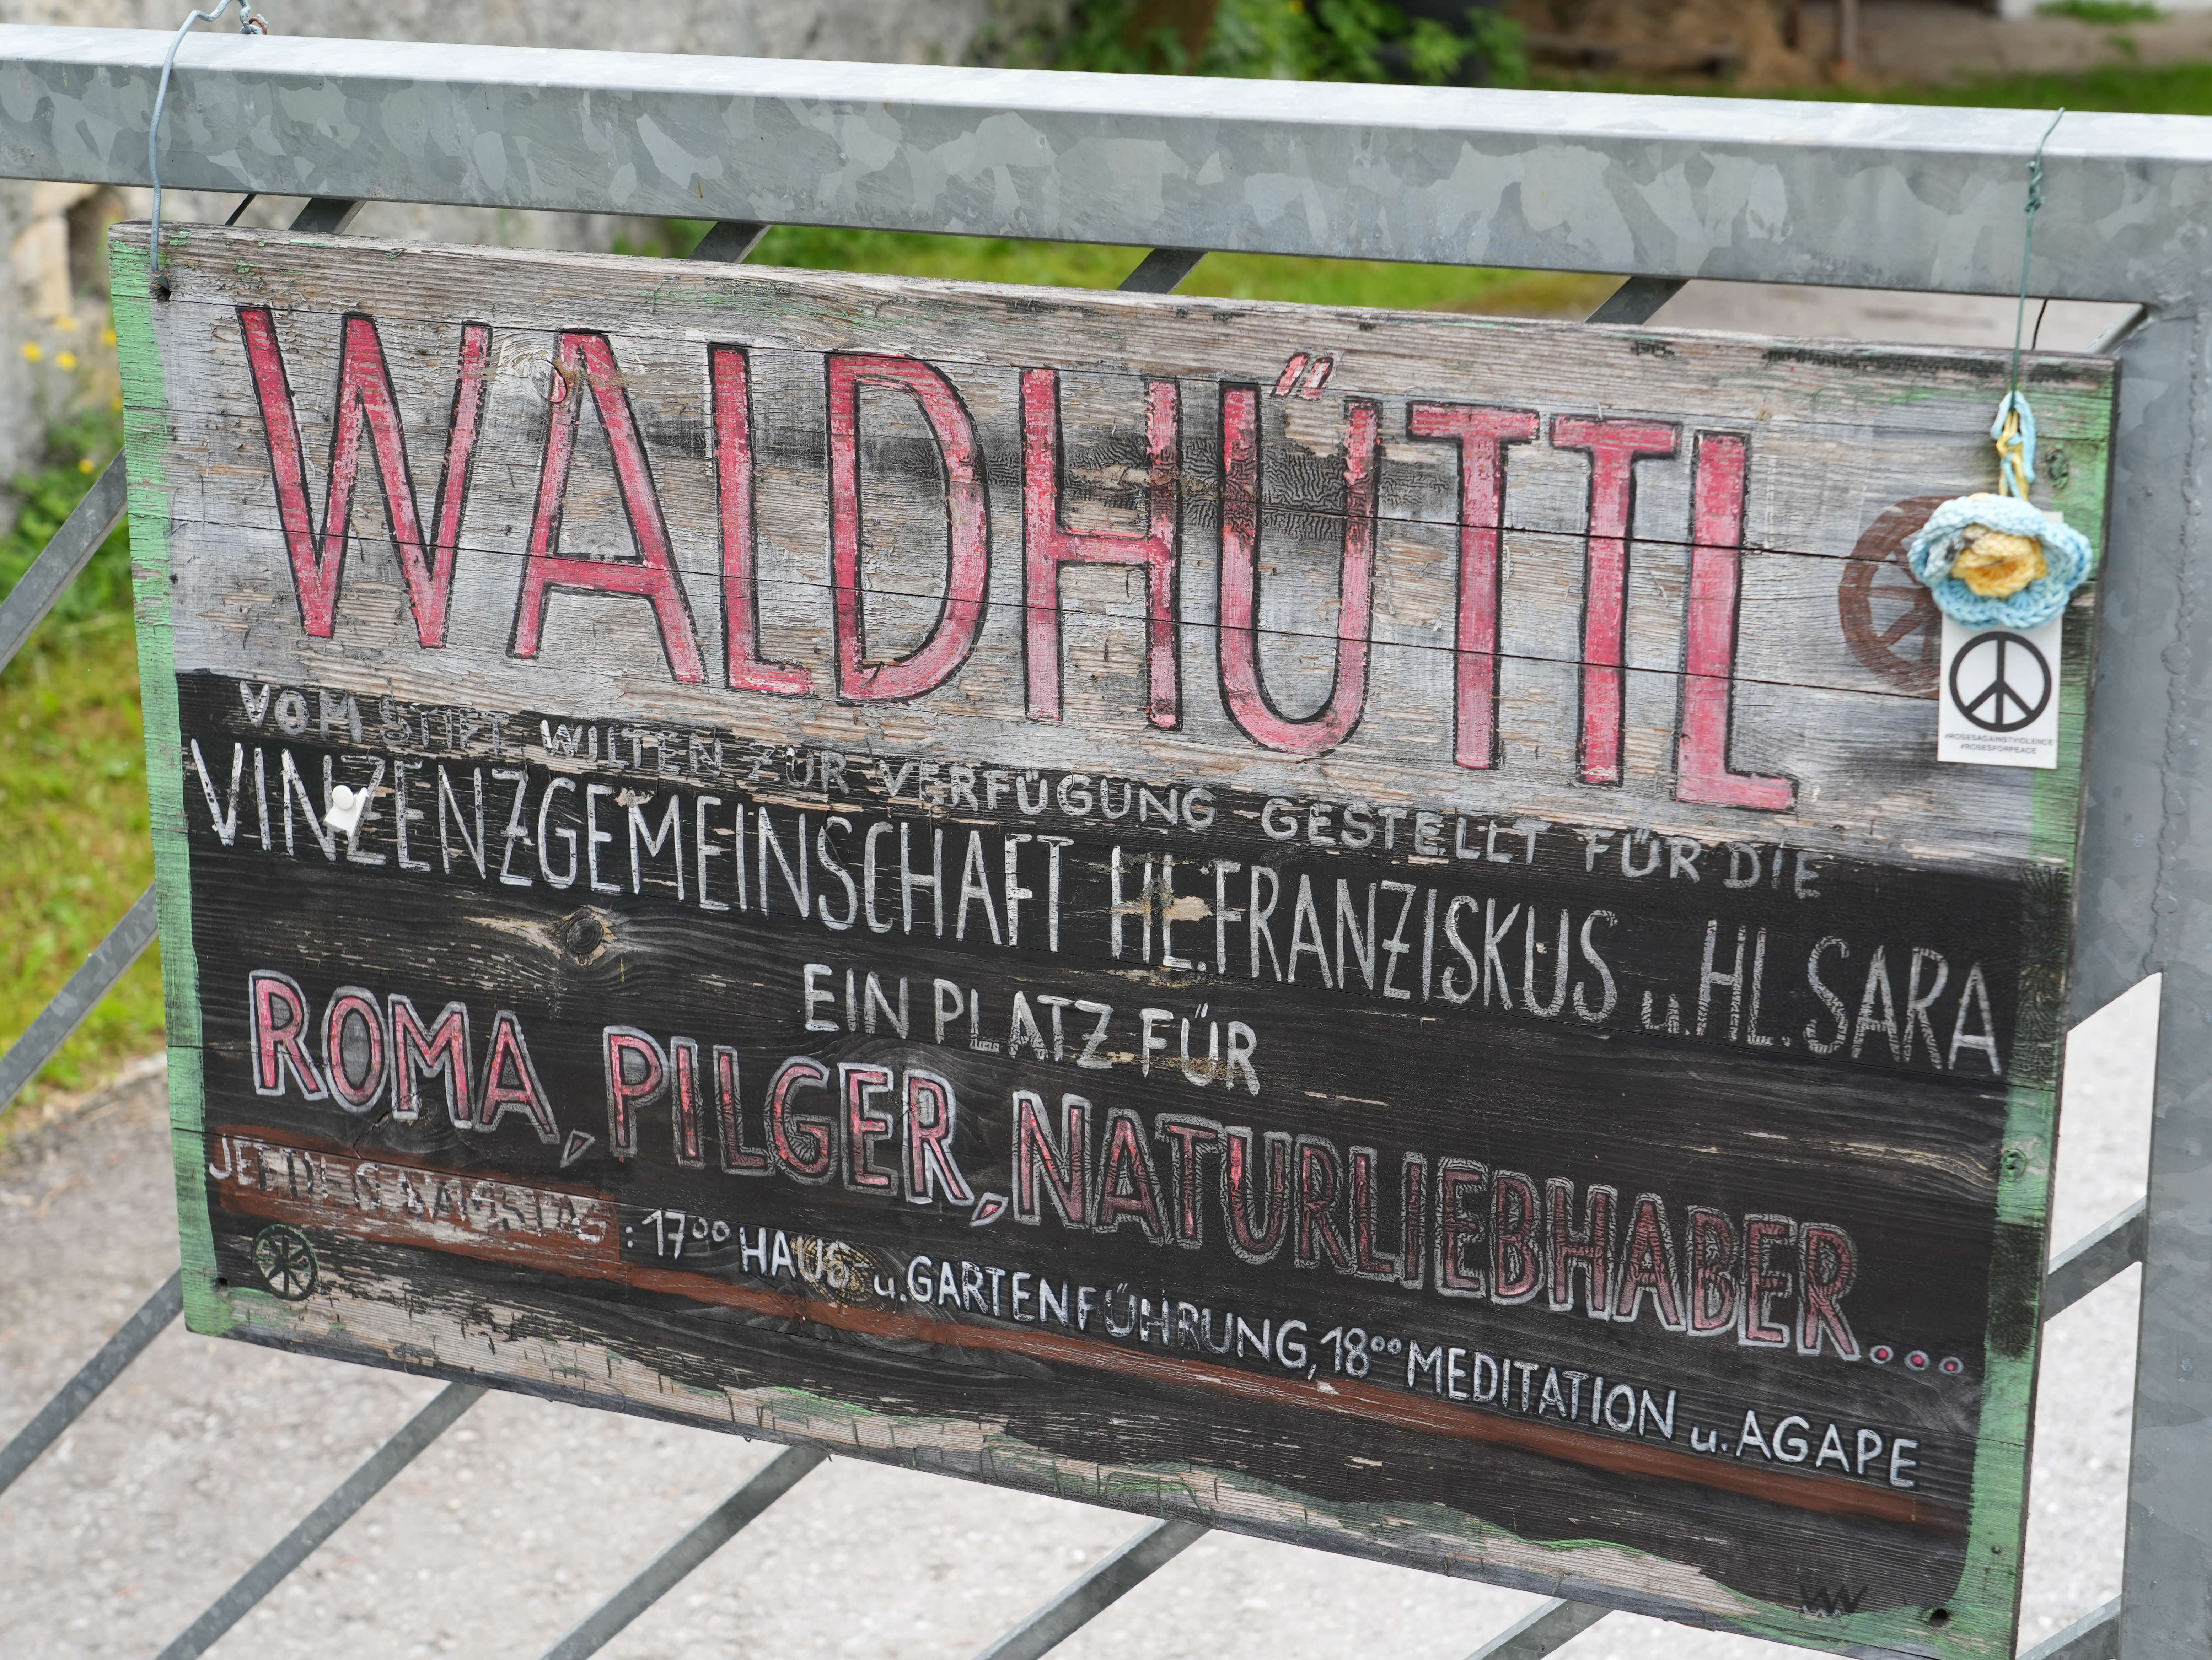 WALDHÜTTL
VOM STIFT WILTEN ZUR VERFÜGUNG GESTELLT FÜR DIE
VINZENZGEMEINSCHAFT HL. FRANZISKUS u. HL. SARA
EIN PLATZ FÜR
ROMA, PILGER, NATURLIEBHABER...
JEDEN SAMSTAG: 17⁰⁰ HAUS- u. GARTENFÜHRUNG, 18⁰⁰ MEDITATION u. AGAPE
#ROSESAGAINSTVIOLENCE
#ROSESFORPEACE